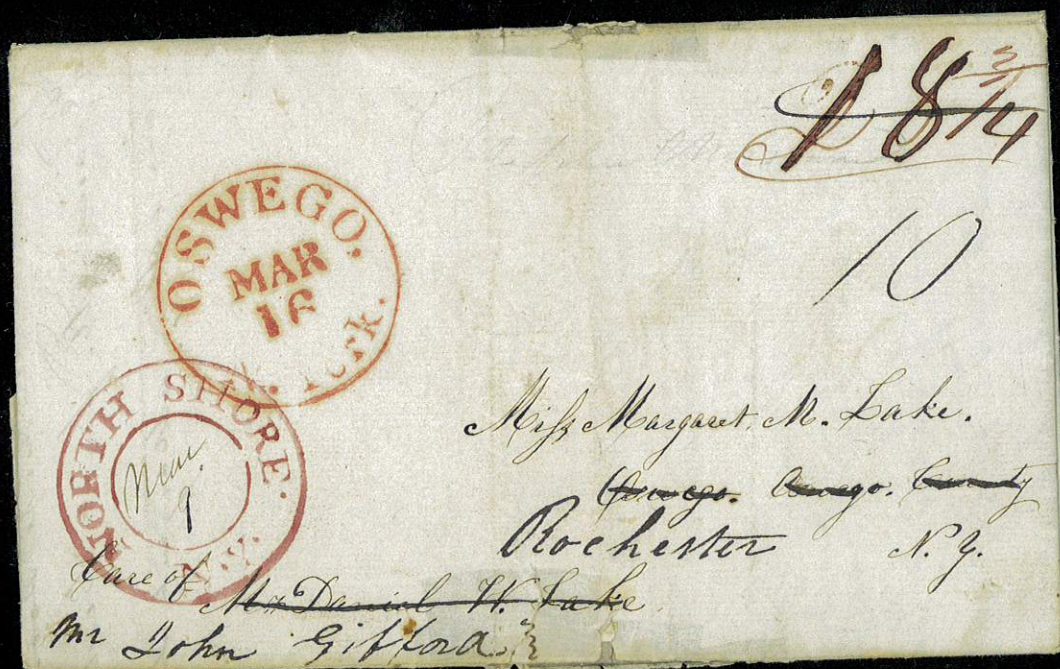 18 3/4
10
OSWEGO.
MAR
16
N. York.
NORTH SHORE.
Mar.
9
N.Y.
Miss Margaret. M. Lake.
Oswego. Oswego. County
Rochester N. Y.
Care of Mr Daniel W. Lake
Mr John Gifford.